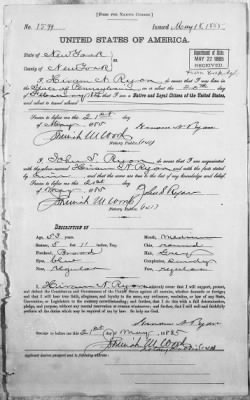 [FORM FOR NATIVE CITIZEN.]
No. 1599 Issued May 18, 1885
UNITED STATES OF AMERICA.
State of New York
County of New York
MAY 22 1885
RECEIVED
I, Hiram N. Ryon, do swear that I was born in
the State of Pennsylvania, on the day
of that I am a Native and Loyal Citizen of the United States,
and about to travel abroad
Sworn to before me this 21st day
of May 1885
Notary Public.
I, John S. Ryon, do swear that I am acquainted
with the above named Hiram N. Ryon, and with the facts stated
by him, and that the same are true to the best of my knowledge and belief.
Sworn to before me this 21st day
of May 1885
John S. Ryon
Notary Public.
DESCRIPTION OF
Age, 53 years. Mouth, medium
Stature, 5 feet 11 inches, Eng. Chin, round
Forehead, Broad Hair, Gray
Eyes, blue Complexion,
Nose, regular Face, regular
I, Hiram N. Ryon, do solemnly swear that I will support, protect,
and defend the Constitution and Government of the United States against all enemies, whether domestic or foreign;
and that I will bear true faith, allegiance, and loyalty to the same, any ordinance, resolution, or law of any State,
Convention, or Legislature to the contrary notwithstanding; and further, that I do this with a full determination,
pledge, and purpose, without any mental reservation or evasion whatsoever; and further, that I will well and faithfully
perform all the duties which may be required of me by law. So help me God.
Sworn to before me this 21st day of May, 1885
Applicant desires passport sent to following address: